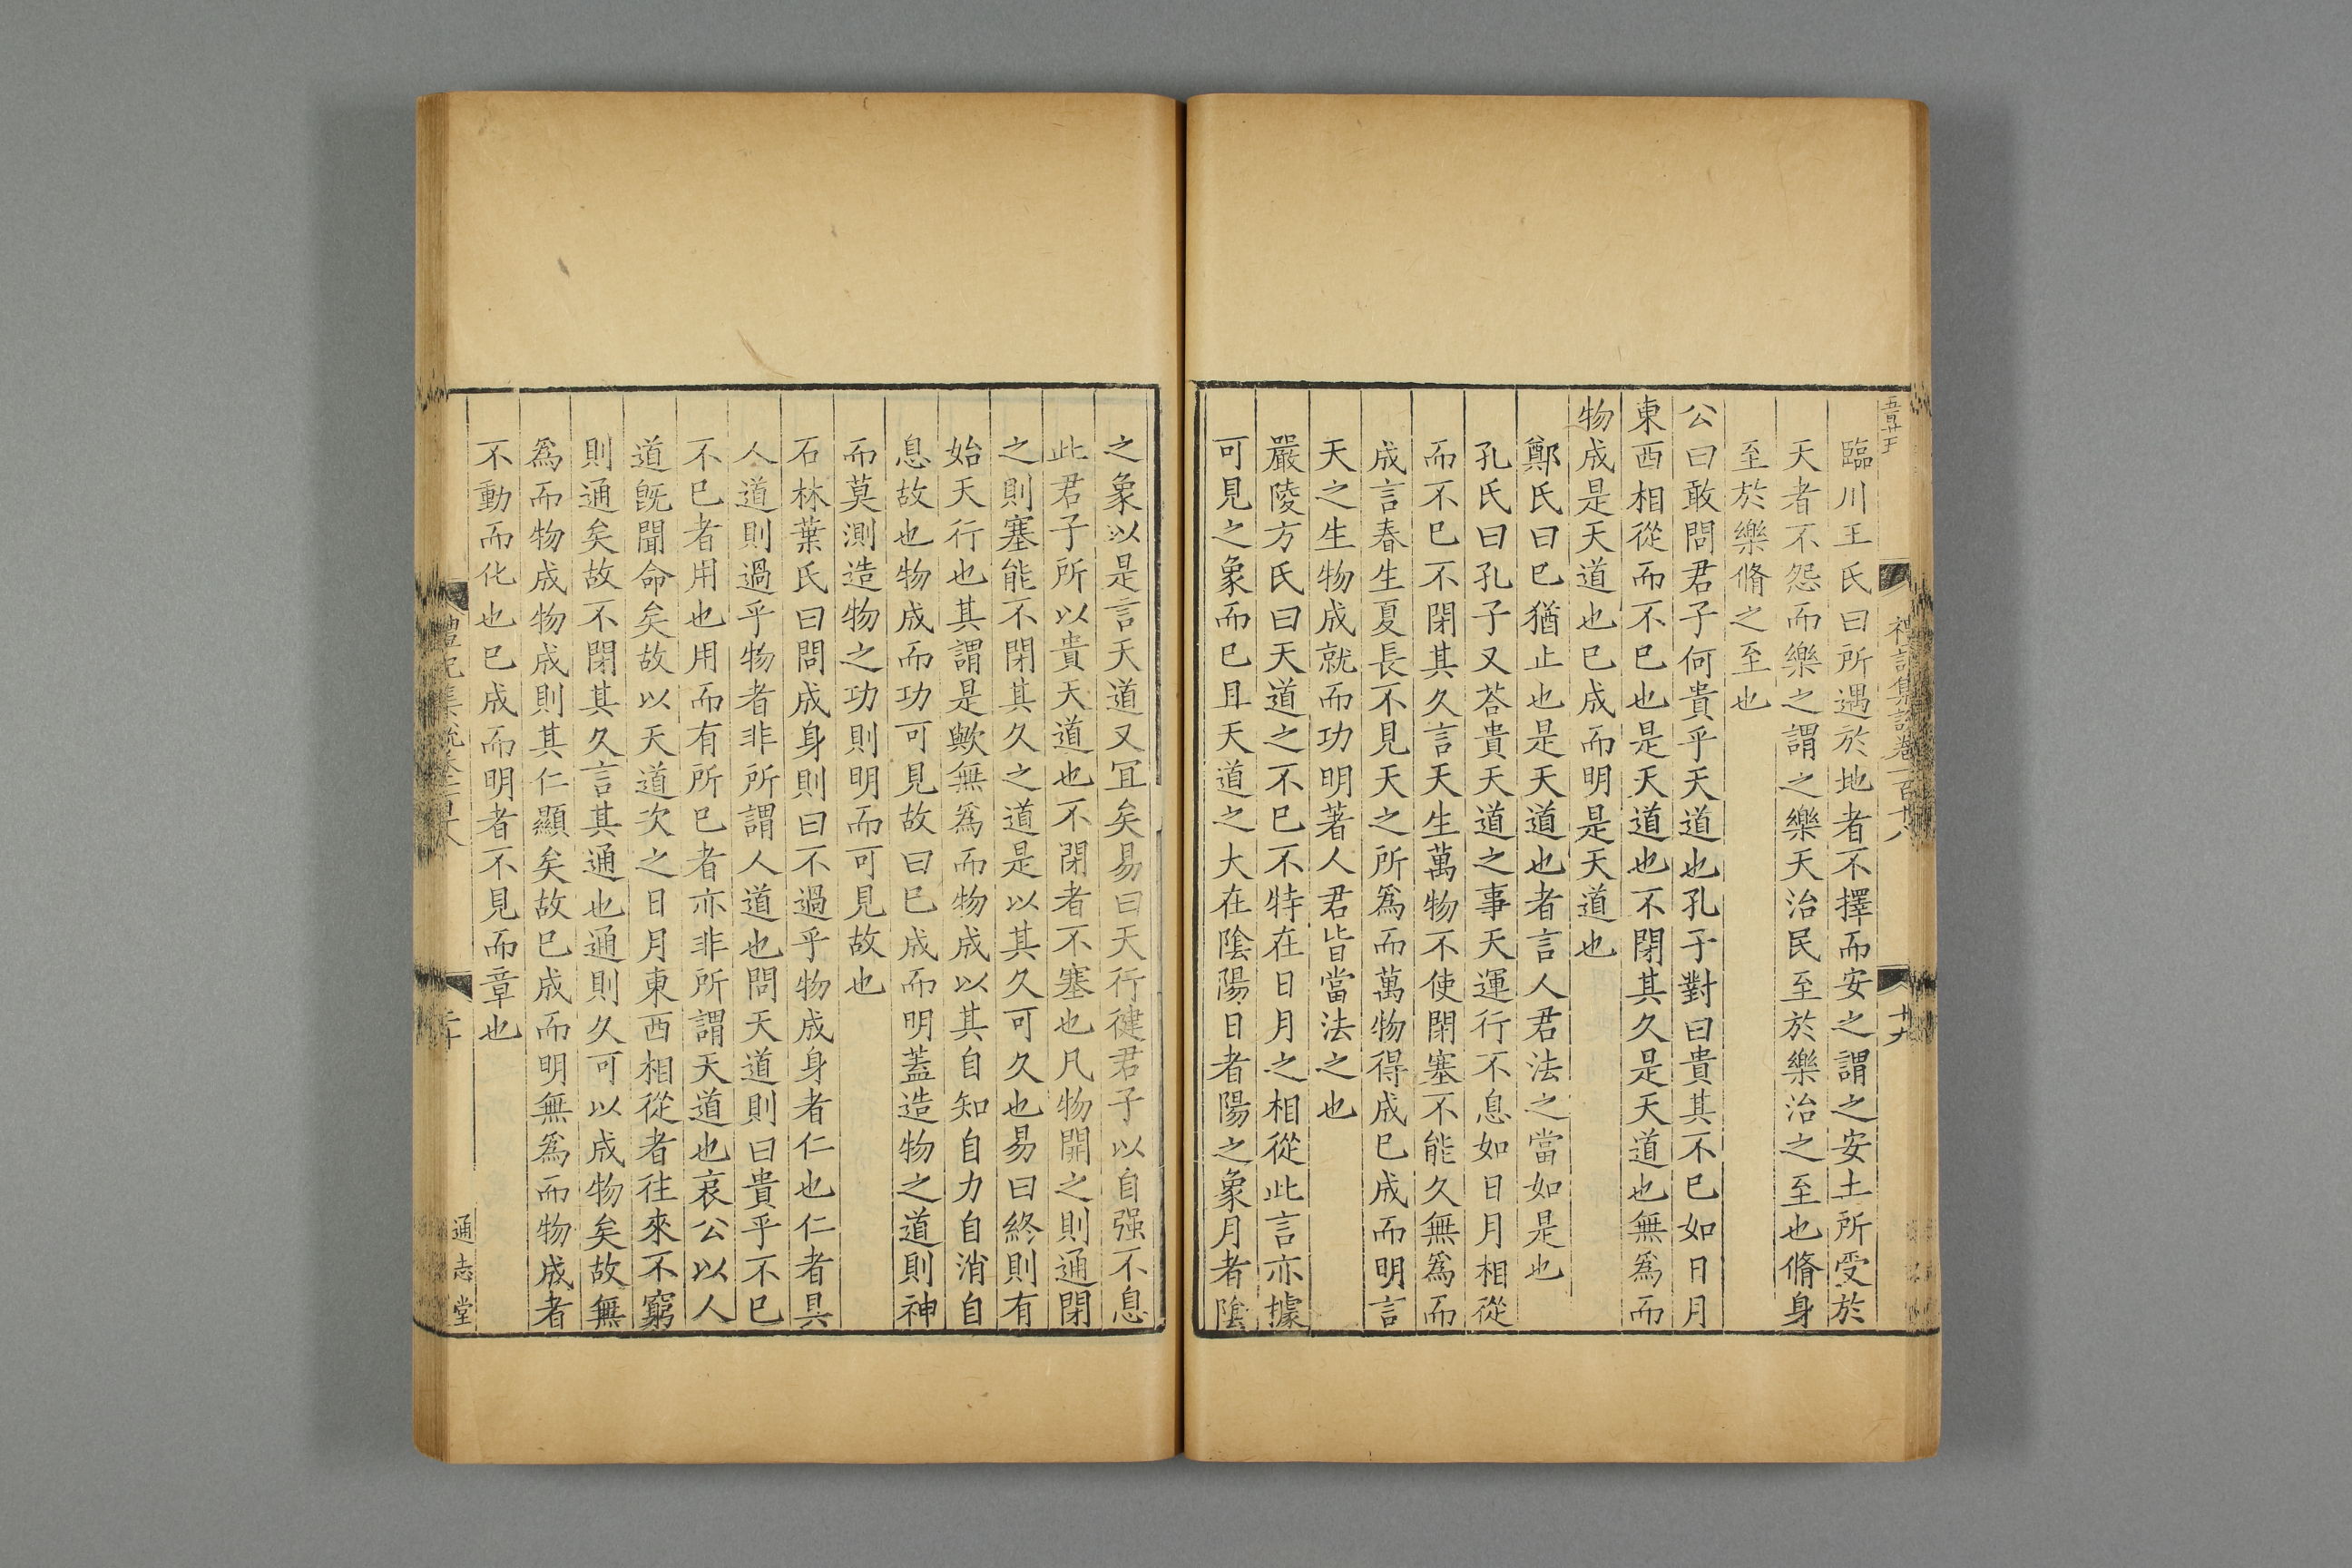 禮記集說卷一百十八
十九
臨川王氏曰所遇於地者不擇而安之謂之安土所受於
天者不怨而樂之謂之樂天治民至於樂治之至也脩身
至於樂脩之至也
公曰敢問君子何貴乎天道也孔子對曰貴其不已如日月
東西相從而不已也是天道也不閉其久是天道也無爲而
物成是天道也已成而明是天道也
鄭氏曰已猶止也是天道也者言人君法之當如是也
孔氏曰孔子又荅貴天道之事天運行不息如日月相從
而不已不閉其久言天生萬物不使閉塞不能久無爲而
成言春生夏長不見天之所爲而萬物得成已成而明言
天之生物成就而功明著人君皆當法之也
嚴陵方氏曰天道之不已不特在日月之相從此言亦據
可見之象而已且天道之大在陰陽日者陽之象月者陰
之象以是言天道又冝矣易曰天行徤君子以自强不息
此君子所以貴天道也不閉者不塞也凡物開之則通閉
之則塞能不閉其久之道是以其久可久也易曰終則有
始天行也其謂是歟無爲而物成以其自知自力自消自
息故也物成而功可見故曰已成而明蓋造物之道則神
而莫測造物之功則明而可見故也
石林葉氏曰問成身則曰不過乎物成身者仁也仁者具
人道則過乎物者非所謂人道也問天道則曰貴乎不已
不已者用也用而有所已者亦非所謂天道也哀公以人
道旣聞命矣故以天道次之日月東西相從者往來不窮
則通矣故不閉其久言其通也通則久可以成物矣故無
爲而物成物成則其仁顯矣故已成而明無爲而物成者
不動而化也已成而明者不見而章也
禮記集說卷一百十八
二十
通志堂